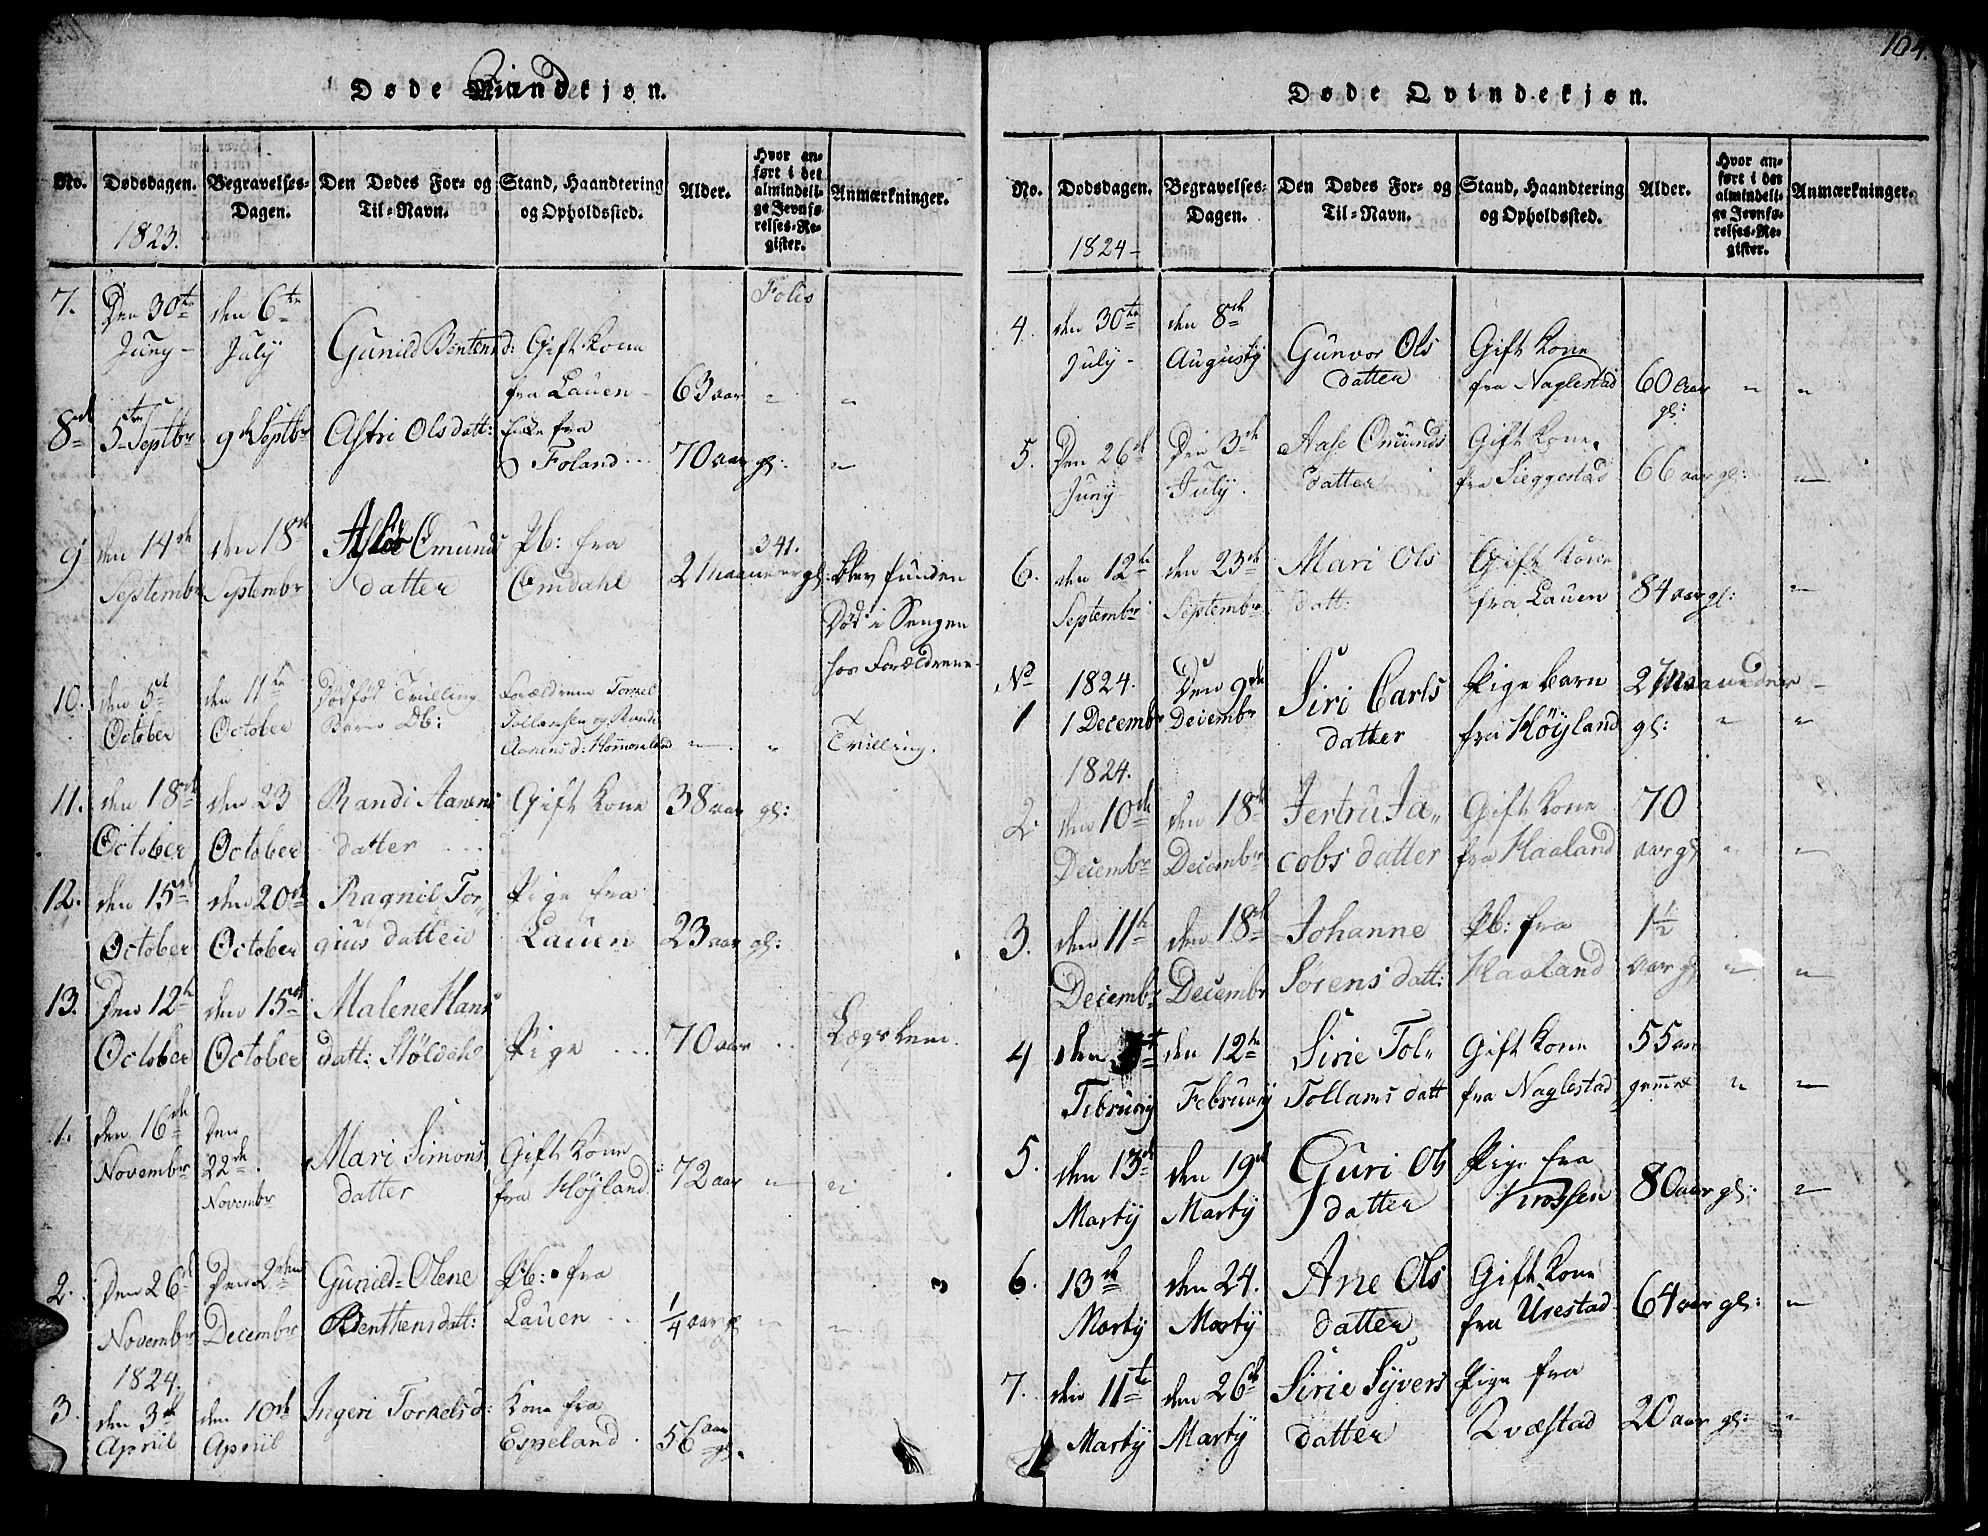 104.
Døde Qvindekjøn.
No.
Dødsdagen.
1823.
Begravelses-
Dagen.
Den Dødes For- og
Til-Navn.
Stand, Haandtering
og Opholdssted.
Alder.
Hvor an-
ført i det
almindeli-
ge Jevnfø-
relses-Re-
gister.
Anmærkninger.
Folio
7.
Den 30te
Juny
den 6te
July
Gunild Bentens d:
Gift Kone
fra Lauen
63 aar
8de
5te Septbr
9de Septbr
Astri Ols datt:
Enke fra
Foland
70 aar gl:
9
den 14de
Septembr
den 18de
Septembr
Omunds
datter
Pb: fra
Omdahl
2 Maaneder gl:
341.
blev funden
Død i Sengen
hos Forældrene
10.
den 5te
October
den 11te
October
Dødfød Tvilling
Barn Db:
Forældrene Torkel
Tollamsen og Randi
Aanens d:
Tvilling.
11.
den 18de
October
den 23
October
Randi Aanens
datter
Gift Kone
38 aar gl:
12.
den 15de
October
den 20de
October
Ragnil Tor-
gius datter
Pige fra
Lauen
23 aar gl:
13.
Den 12te
October
den 15de
October
Malene Hans
datt: Støldahl
Pige
70 aar
Lægslem.
1.
den 16de
Novembr
Den
22de
Novembr
Mari Simons
datter
Gift Kone
fra Høyland
72 aar
2.
Den 26de
Novembr
Den 2den
Decembr
Gunild-Olene
Benthens datt:
Pb: fra
Lauen
1/4 aar gl
3.
1824.
den 3de
April
den 10de
April
Ingeri Torkels d:
Kone fra
Espeland
56 aar
gl.
Døde Qvindekjøn.
No.
Dødsdagen.
1824
Begravelses-
Dagen.
Den Dødes For- og
Til-Navn.
Stand, Haandtering
og Opholdssted.
Alder.
Hvor an-
ført i det
almindeli-
ge Jevnfø-
relses-Re-
gister.
Anmærkninger.
4.
den 30te
July
den 8de
Augusty
Gunvor Ols
datter
Gift Kone
fra Naglestad
60 Aar
gl:
5.
Den 26de
Juny
Den 3de
July
Aase Omunds
datter
Gift Kone
fra Sieggestad
66 aar gl:
6.
den 12te
Septembr
den 23de
Septembr
Mari Ols
datt:
Gift Kone
fra Lauen
84 aar gl:
No
1
1824.
1 Decembr
Den 9de
Decembr
Siri Carls
datter
Pige barn
fra Høyland
2 Maaneder
gl:
1824.
2.
den 10de
Decembr
den 18de
Decembr
Jertru Ja-
cobs datter
Gift Kone
fra Haaland
70
aar gl
3.
den 11te
Decembr
den 18de
Decembr
Johanne
Sørens datt:
Pb: fra
Haaland
1 1/2
Aar gl
4
den
Februarij
den 12te
Februarij
Sirie Tol-
Tollams datt
Gift Kone
fra Naglestad
55 aar
gammel
5.
den 13de
Martij
den 19de
Martij
Guri Ols
datter
Pige fra
80 aar gl:
6.
13de
Martij
den 24.
Martij
Ane Ols
datter
Gift Kone
fra Urestad
64 aar gl:
7.
den 11te
Martij
den 26de
Martij
Sirie Syvers
datter
Pige fra
Qvæstad
20 aar gl: